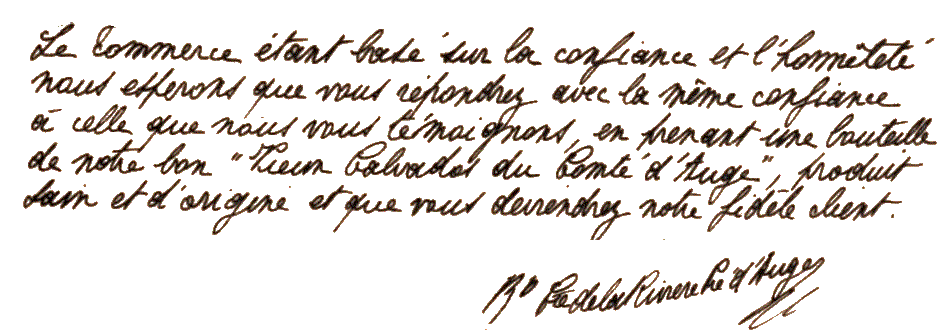 Le Commerce étant basé sur la confiance et l'honnêteté
nous esperons que vous répondrez avec la même confiance
à celle que nous vous témoignons, en prenant une bouteille
de notre bon "Vieux Calvados du Comté d'Auge", produit
sain et d'origine et que vous deviendrez notre fidèle client.
de la Riviere Pré d'Auge